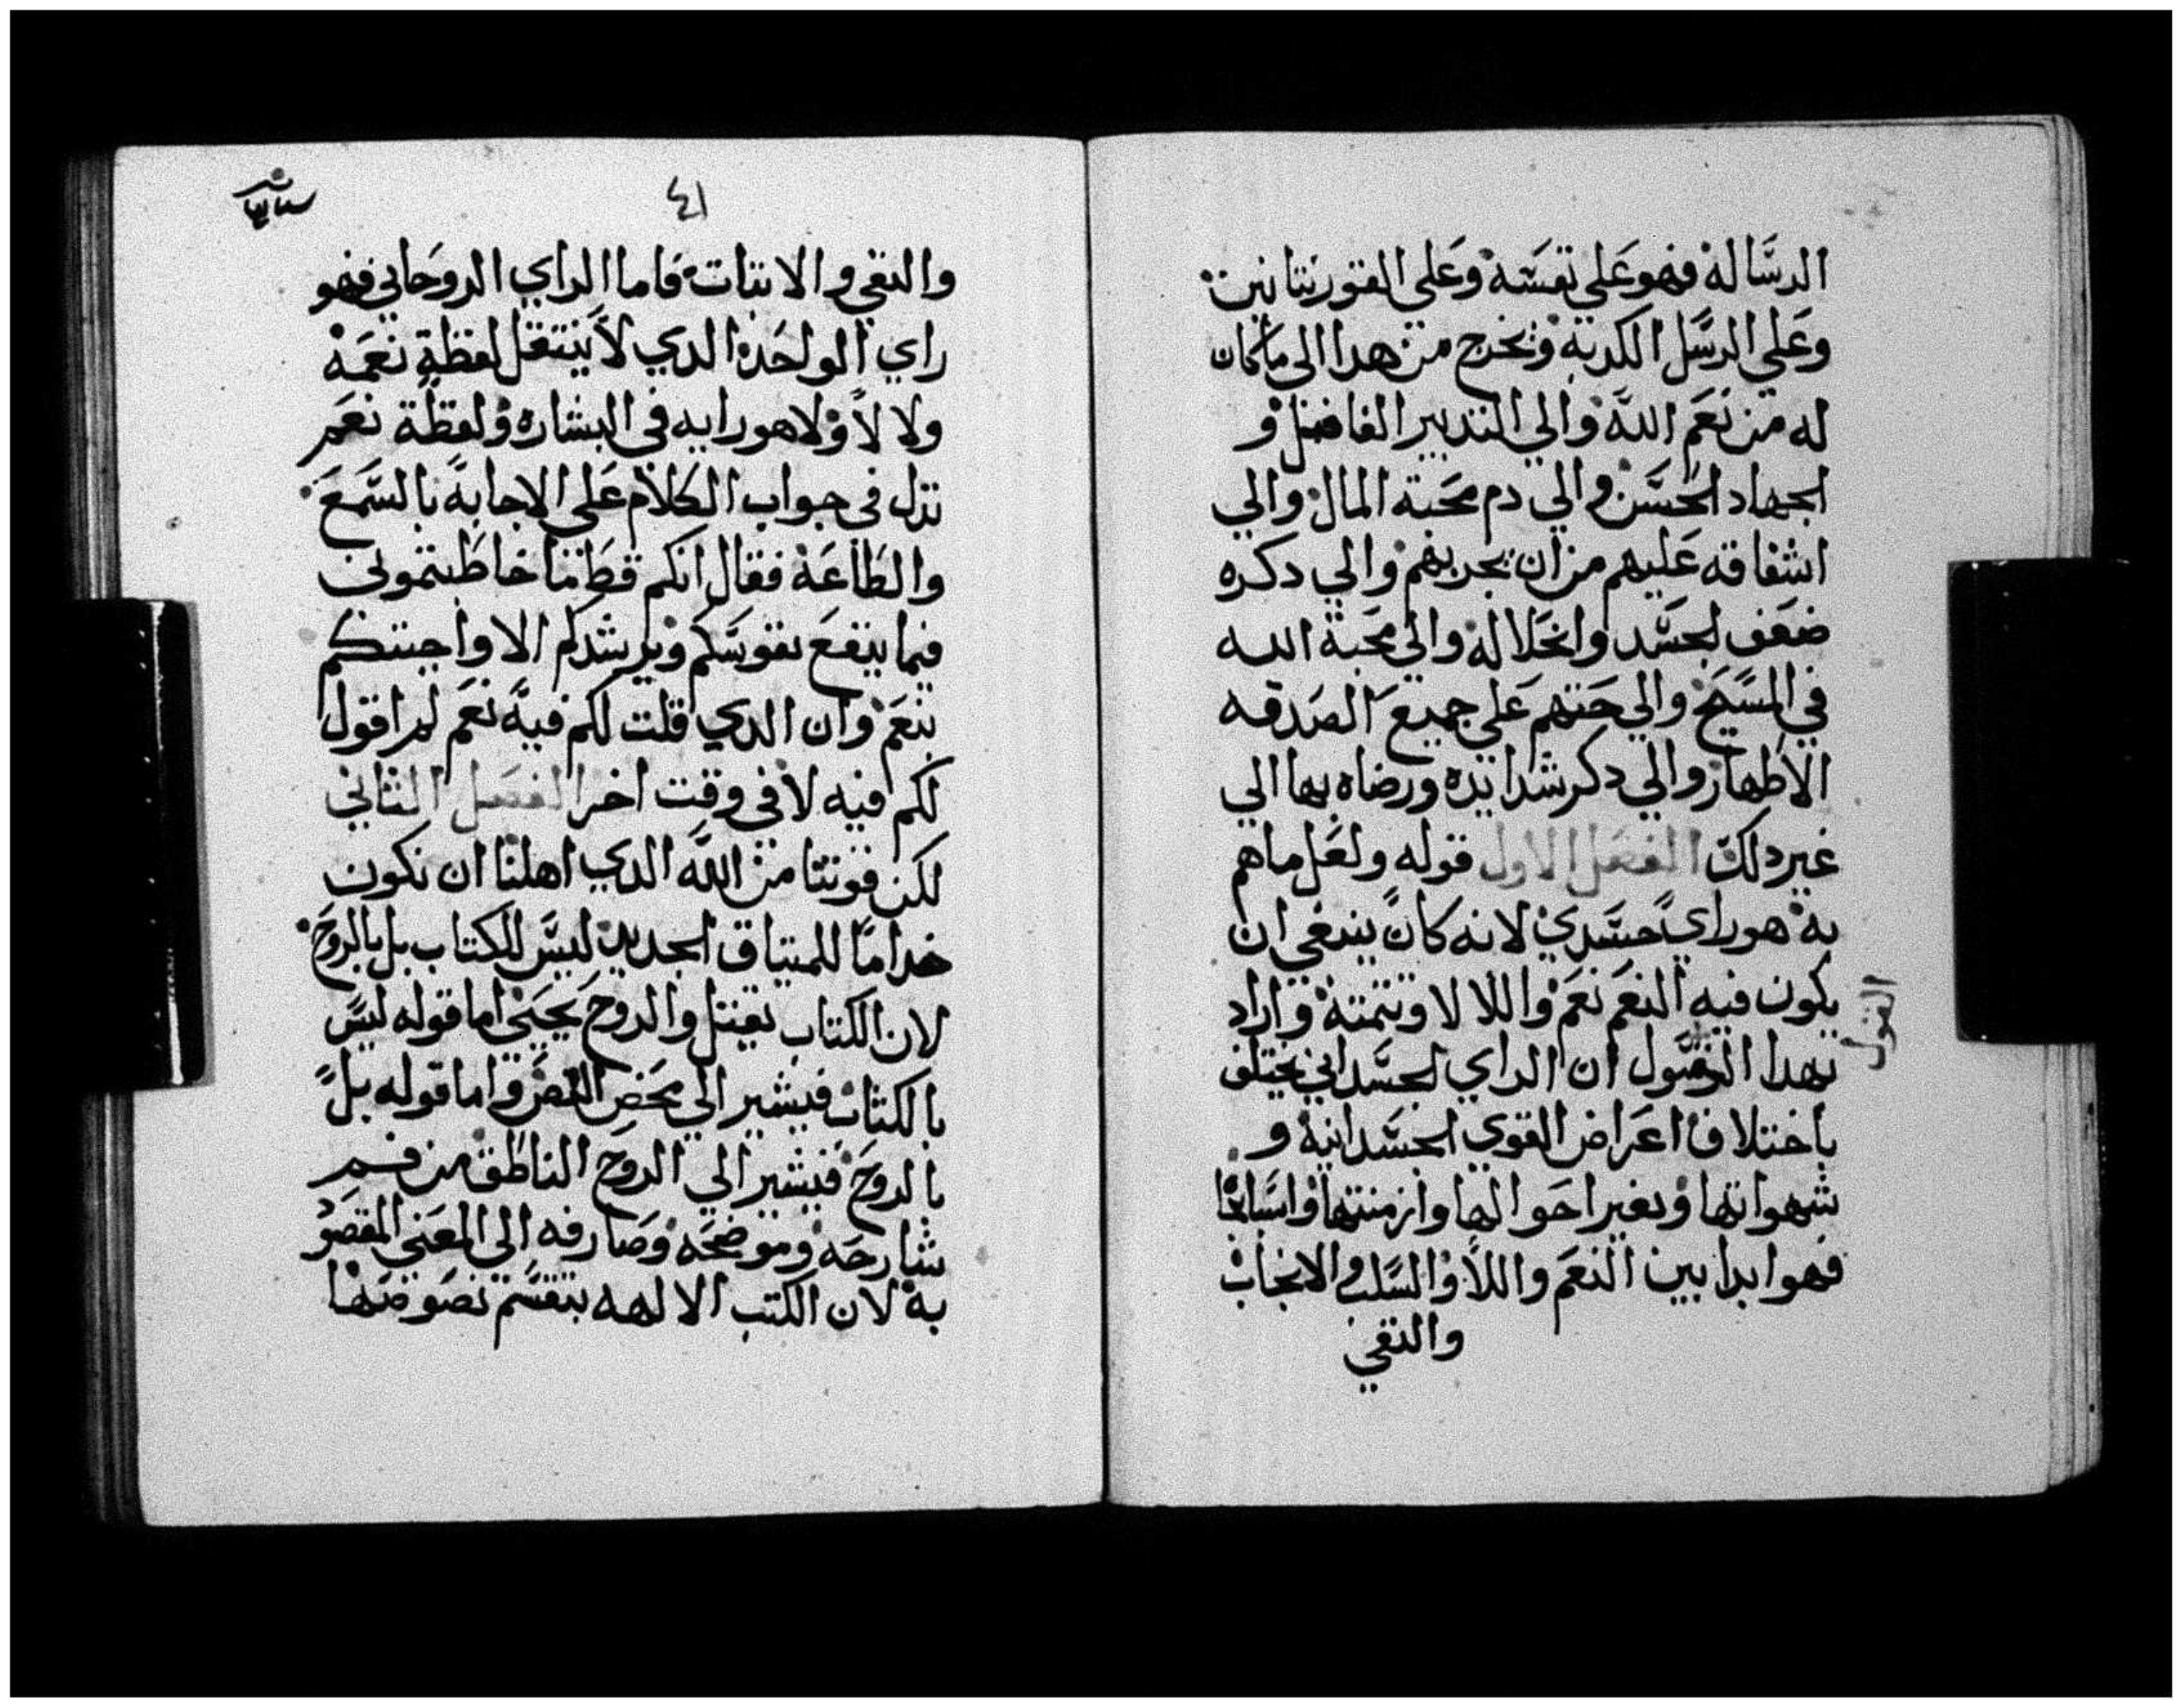 الرساله فهو علي نفسه وعلي القورنتانيين
وعلي الرسل الكدبه وبخرج من هدا الي ماكان
له من نعم الله والي التدبير الفاضل و
الجهاد الحسن والي دم محبة المال والي
اشفاقه عليهم من ان يجربهم والي دكره
ضعف الجسد وانحلاله والي محبة الله
في المسيح والي حتهم علي جميع الصدقه
الاطهار والي دكر شدايده ورضاه بها الي
غير دلك الفصل الاول قوله ولعل ماهم
به هو راي جسدي لانه كان ينبغي ان
يكون فيه النعم نعم واللا لا وتتمتة واراد
بهدا القول ان الراي الجسداني يختلف
القول
باختلاف اعراض القوي الجسدانية و
شهواتها وتغير احوالها وازمنتها واسبابها
فهو ابدا بين النعم واللا والسلب والايجاب
والنفي
٤١
والنفي والاتبات فاما الراي الروحاني فهو
راي الواحد الدي لا ينتقل لفظة نعم
ولا لا ولا هو رايه في البشاره ولفظة نعم
تزل في جواب الكلام علي الاجابة بالسمع
والطاعة فقال انكم قط ما خاطبتموني
فيما ينفع نفوسكم ويرشدكم الا واجبتكم
بنعم وان الدي قلت لكم فيه نعم لم اقول
لكم فيه لا في وقت اخر الفصل الثاني
لكن قوتنا من الله الدي اهلنا ان نكون
خداما للميتاق الجديد ليس للكتاب بل بالروح
لان الكتاب يقتل والروح يحيي اما قوله ليس
بالكتاب فيشير الي محض النص واما قوله بل
بالروح فيشير الي الروح الناطق من فم
شارحه وموضحه وصارفه الي المعني المقصود
به لان الكتب الالهه تنقسم نصوصها